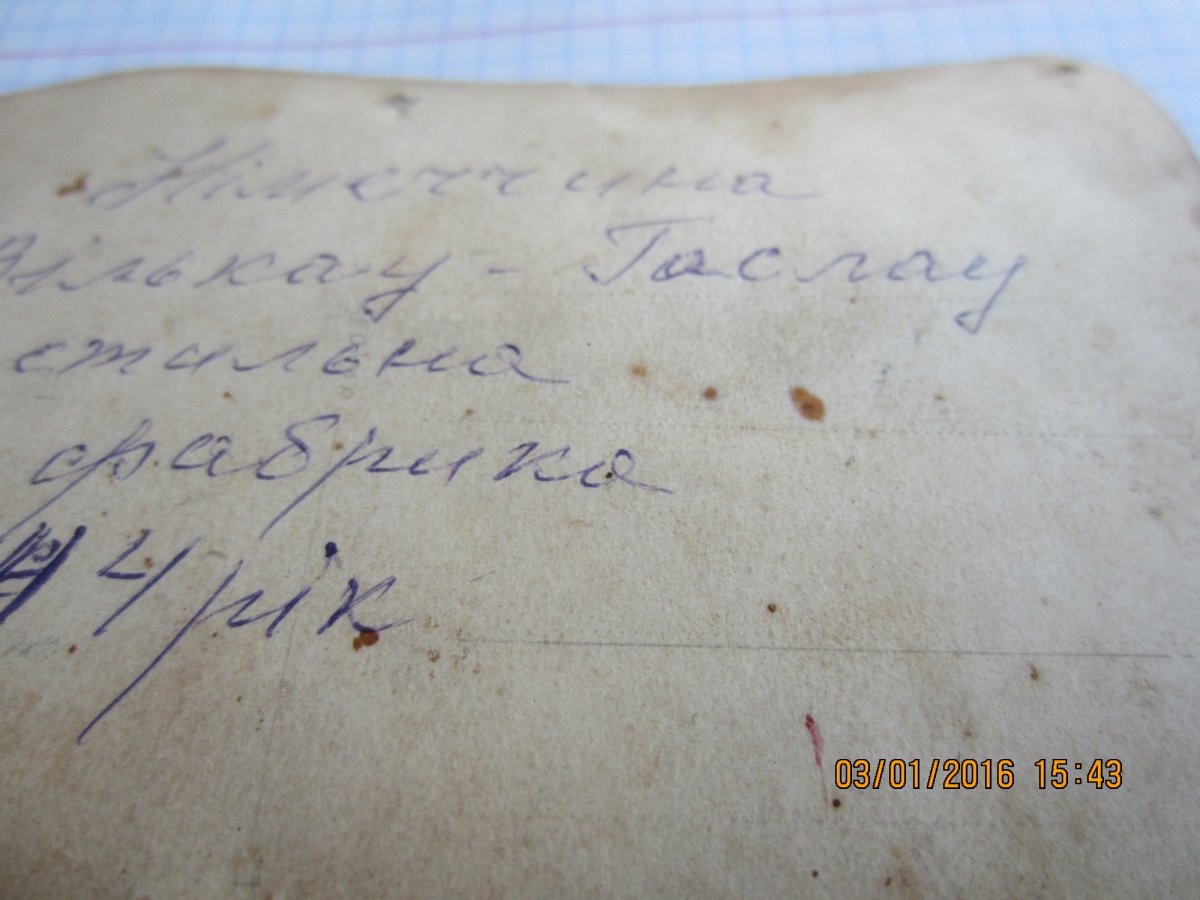 Німеччина
Вількау - Гаслау
стальна
фабрика
4 рік
03/01/2016 15:43